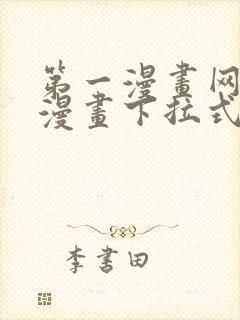 第一漫畫网
漫畫下拉式
李書田